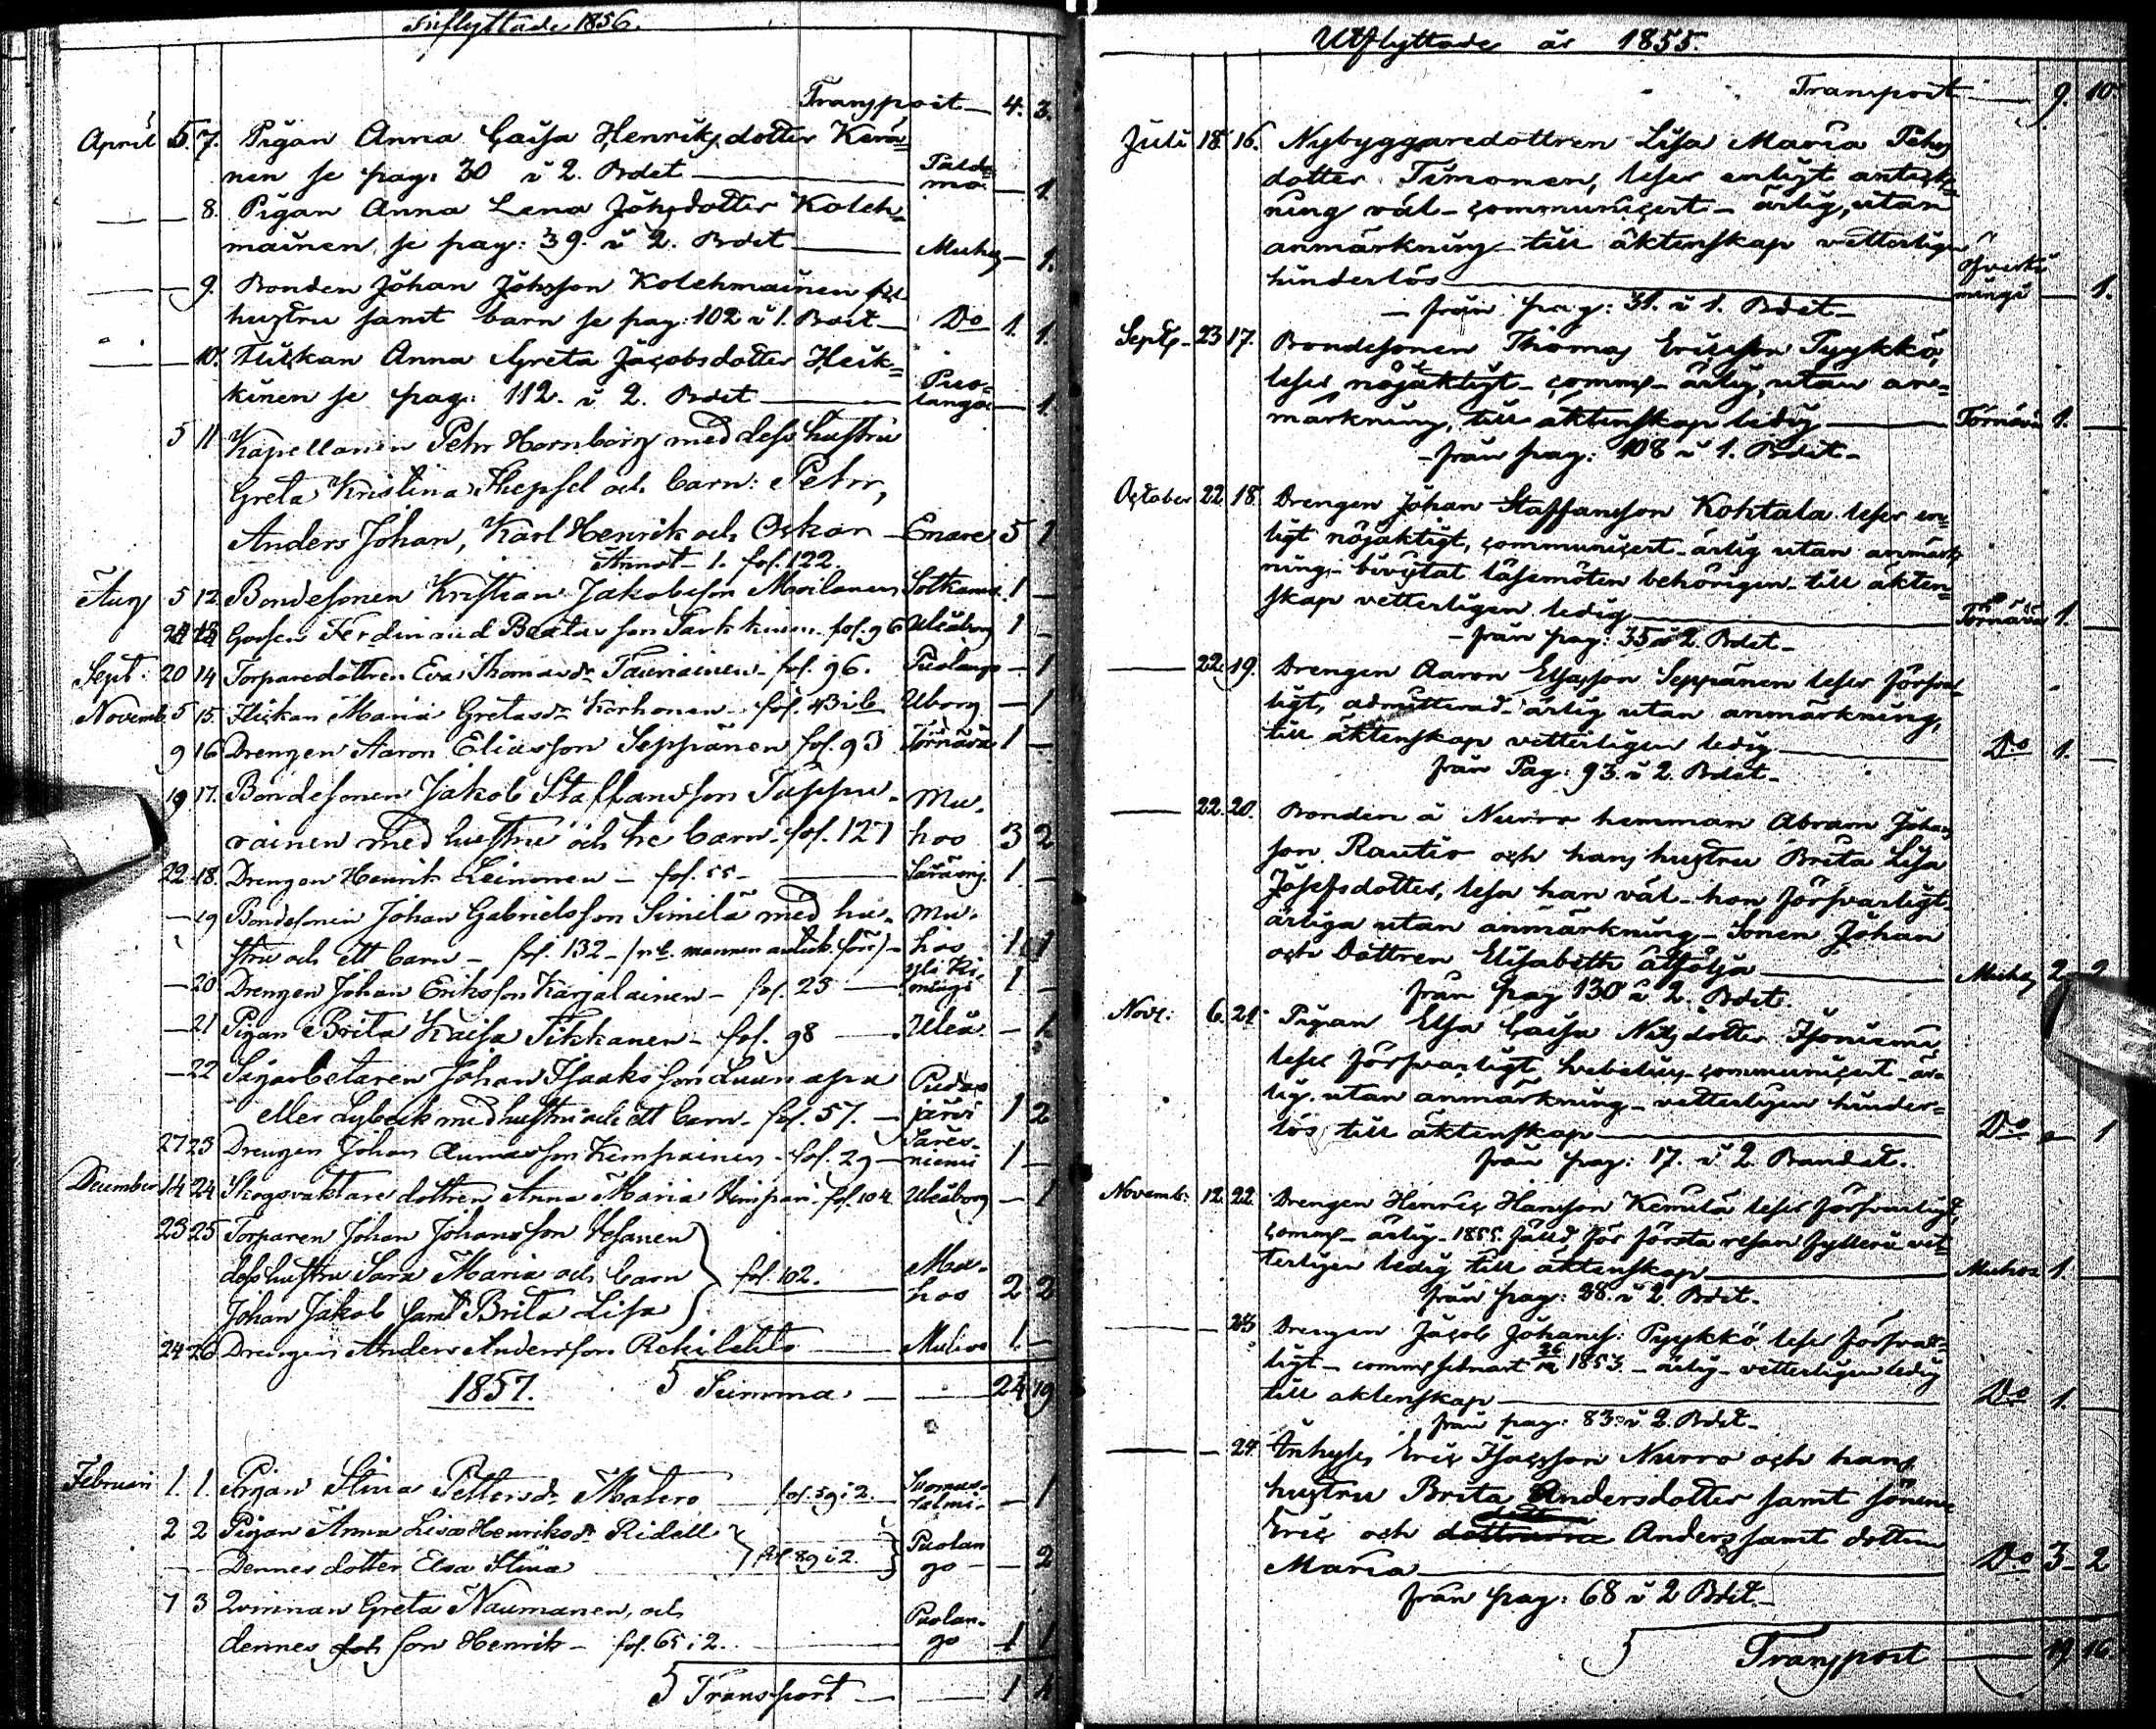 Inflyttade 1856.
Transport — 4. 3.
April 5. 7. Pigan Anna Caisa Henriksdotter Kerä=
nen se pag: 20 i 2. Bdet — Paldamo — 1
— — 8. Pigan Anna Lena Johsdotter Koleh=
mainen se pag: 39. i 2. Bdet — Muhos — 1.
— — 9. Bonden Johan Johsson Kolehmainen
hustru samt barn se pag: 102 i 1. Bdet — Do 1. 1.
— — 10. Flickan Anna Greta Jacobsdotter Heik=
kinen se pag: 112. i 2. Bdet — Puolango — 1.
5 11 Kapellanen Petr Hornborg med dess hustru
Greta Kristina Thepsel och barn: Petr,
Anders Johan, Karl Henrik och Oskar — Enare 5 1
Annot. 1. fol. 122.
Aug 5 12 Bondesonen Kristian Jakobsson Moilanen Sotkamo 1 —
Gossen Ferdinand Beatasson Tarkkinen fol. 96 Uleåborg 1 —
Sept. 20 14 Torparedottren Eva Thomasdr Tauriainen fol. 96. Puolango — 1
Novemb. 5 15. Flickan Maria Gretasdr Korhonen — Uborg — 1
9 16 Drengen Aaron Eliasson Seppänen fol. 93 Törnävä 1 —
19 17. Bondesonen Jakob Staffansson Tappu- Mu-
rainen med hustru och tre barn. fol. 127 hos 3 2
22 18. Drengen Henrik Leinonen — fol. 55 — 1 —
— 19 Bondesonen Johan Gabrielsson Similä med hu- Mu-
stru och ett barn — fol. 132 — hos 1 1
— 20 Drengen Johan Eriksson Karjalainen — fol. 23 — 1 —
— 21 Pigan Brita Kaisa Tikkanen — fol. 98 — Uleå. — 1
— 22 Sågarbetaren Johan Isaksson Luunapu Pudas
eller Lybeck med hustru och ett barn. fol. 57. — järvi 1 2
27 23 Drengen Johan Kempainen — fol. 29 — niemi 1 —
December 14 24 Skogsvaktaredottren Anna Maria Kimpari fol. 104 Uleåborg — 1
23 25 Torparen Johan Johansson Vesanen
dess hustru Sara Maria och barn fol. 102. Mu-
Johan Jakob samt Brita Lisa hos 2 2
24 26 Drengen Anders Andersson Rekilehto — Muhos 1 —
1857. Summa — 24 19
Februari 1 1. Pigan Stina Pettersdr Matero fol. 59 i 2. Suomus-
salmi — 1
2 2 Pigan Anna Lisa Henriksdr Ridell Puolan
— — Dennes dotter Elsa Stina fol. 89 i 2. go — 2
7 3 Qvinnan Greta Naumanen, och Puolan-
dennes son Henrik — fol. 65 i 2. go 1 1
Transport — 1 4
Utflyttade år 1855.
Transport — 9. 10.
Juli 18. 16. Nybyggaredottren Lisa Maria Pehrs
dotter Timonen, läser enligt anteck=
ning väl — communicert — ärlig, utan
anmärkning — till äktenskap vetterligen
hinderlös — 1.
— från pag: 31. i 1. Bdet —
Sept. 23 17. Bondesonen Thomas Ericsson Pyykkö,
läser nöjaktigt — comms — ärlig, utan an=
märkning, till äktenskap ledig — Törnävä 1. —
— från pag: 108 i 1. Bdet —
October 22 18. Drengen Johan Staffansson Kohtala läser en=
ligt nöjaktigt, communicert — ärlig utan anmärk
ning — bivistat läsemöten behörigen — till äkten=
skap vetterligen ledig — Törnävä 1. —
— från pag: 35 i 2. Bdet —
— 22. 19. Drengen Aaron Eliasson Seppänen läser försvar
ligt, admitterad — ärlig utan anmärkning,
till äktenskap vetterligen ledig — Do 1. —
från Pag: 93 i 2. Bdet —
— 22. 20. Bonden å Nurro hemman Abram Johans
son Rautio och hans hustru Brita Lisa
Josefsdotter, läsa han väl — hon försvarligt —
ärliga utan anmärkning — Sonen Johan
och Dottren Elisabeth åtfölja — Muhos 2 — 2
från pag 130 i 2. Bdet.
Nov: 6. 21. Pigan Elsa Caisa Nilsdotter Isoniemi
läser försvarligt, communicert — är=
lig utan anmärkning — vetterligen hinder=
lös till äktenskap — Do — 1
från pag: 17. i 2. Bandet.
Novemb: 12. 22. Drengen Henric Hansson Kemilä läser försvarligt,
comms — ärlig — 1855. fälld för första resan fylleri vet=
terligen ledig till äktenskap — Muhos 1. —
från pag: 28. i 2. Bdet —
— 23 Drengen Jacob Johanss: Pyykkö läser försvar=
ligt — comms sednast 1853. — ärlig — vetterligen ledig
till äktenskap — Do 1. —
från pag: 83. i 2. Bdet —
— — 24. Inhyses Eric Isacsson Nurro och hans
hustru Brita Andersdotter samt sönerne
Eric och Anders samt dottren
Maria — Do 3 — 2
från pag: 68 i 2 Bdet —
Transport — 19 16